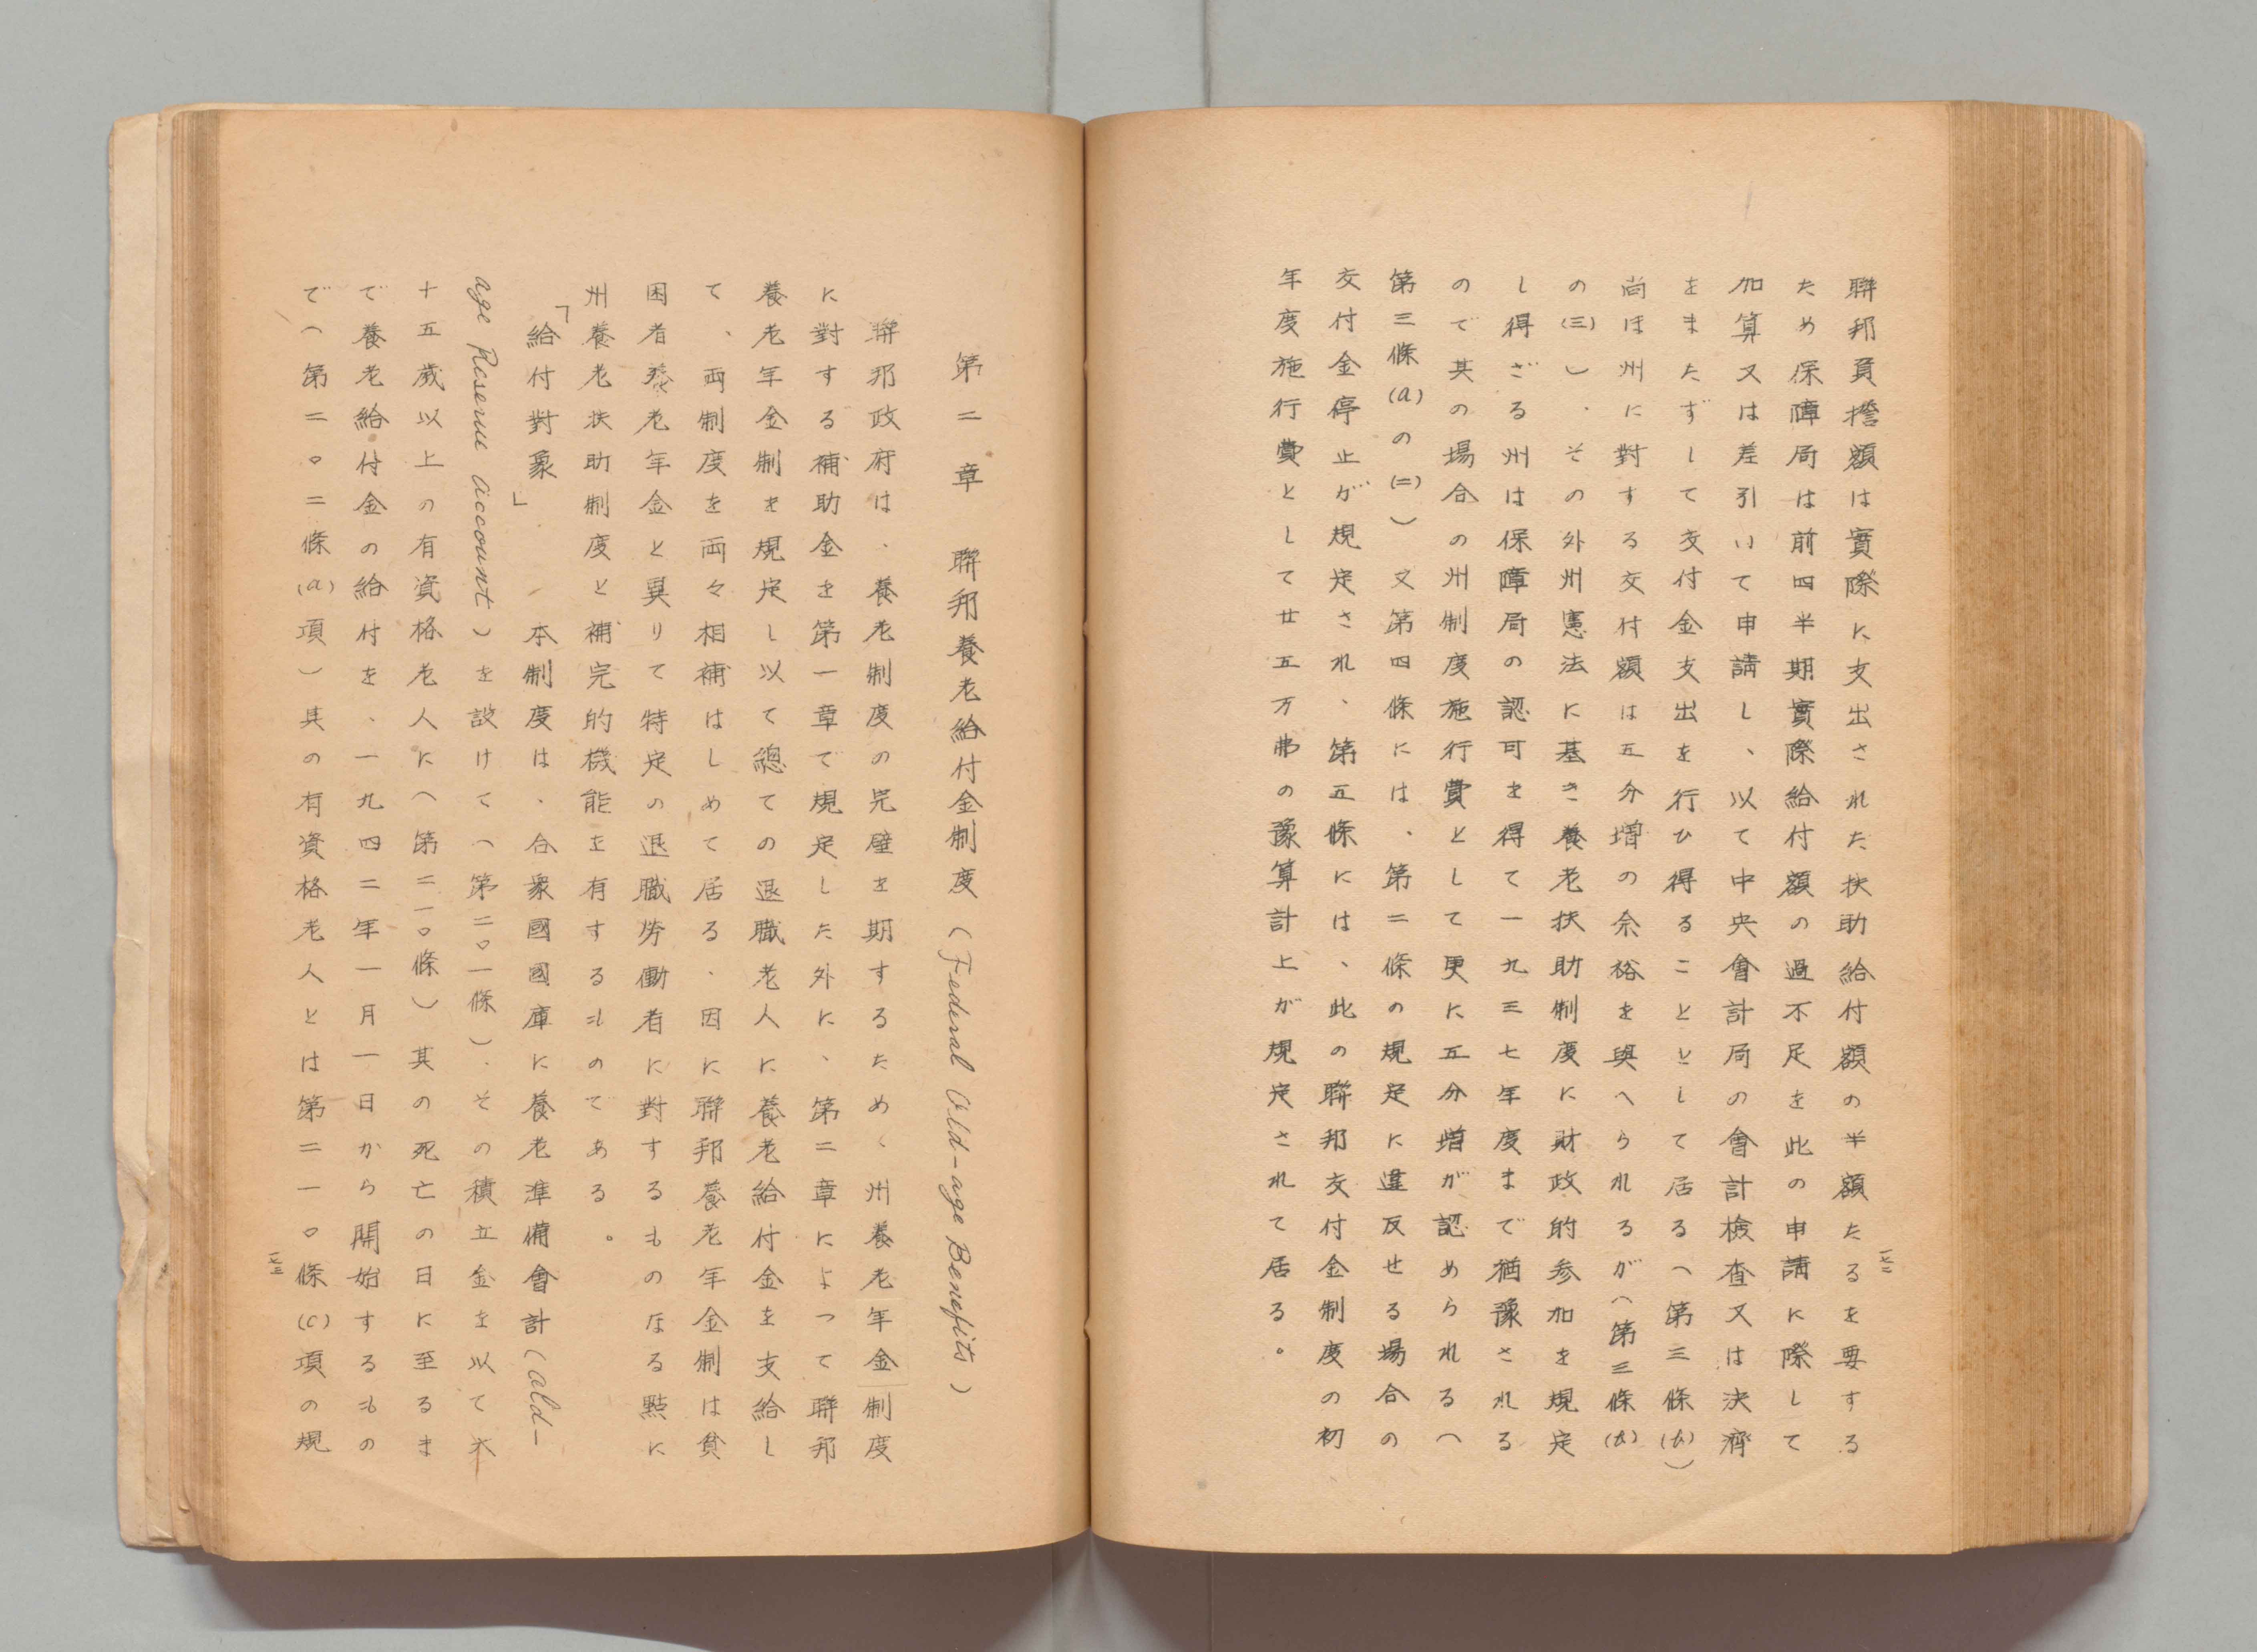 聯邦負擔額は實際に支出された扶助給付額の半額たるを要する
ため保障局は前四半期實際給付額の過不足を此の申請に際して
加算又は差引いて申請し、以て中央會計局の會計檢査又は決濟
をまたずして交付金支出を行ひ得ることとして居る(第三條(b))
尚ほ州に對する交付額は五分増の余裕を與へられるが(第三條(b)
の(三))、その外州憲法に基き養老扶助制度に財政的参加を規定
し得ざる州は保障局の認可を得て一九三七年度まで猶豫される
ので其の場合の州制度施行費として更に五分増が認められる(
第三條(a)の(二))又第四條には、第二條の規定に違反せる場合の
交付金停止が規定され、第五條には、此の聯邦交付金制度の初
年度施行費として廿五万弗の豫算計上が規定されて居る。
一七二
第二章 聯邦養老給付金制度(Federal Old-age Benefits)
聯邦政府は、養老制度の完璧を期するため、州養老年金制度
に對する補助金を第一章で規定した外に、第二章によって聯邦
養老年金制を規定し以て總ての退職老人に養老給付金を支給し
て、両制度を両々相補はしめて居る、因に聯邦養老年金制は貧
困者養老年金と異りて特定の退職労働者に對するものなる點に
州養老扶助制度と補完的機能を有するものである。
「給付對象」 本制度は、合衆國國庫に養老準備會計(old-
age Reserve account)を設けて(第二〇一條)、その積立金を以て六
十五歳以上の有資格老人に(第二一〇條)其の死亡の日に至るま
で養老給付金の給付を、一九四二年一月一日から開始するもの
で(第二〇二條(a)項)其の有資格老人とは第二一〇條(c)項の規
一七三